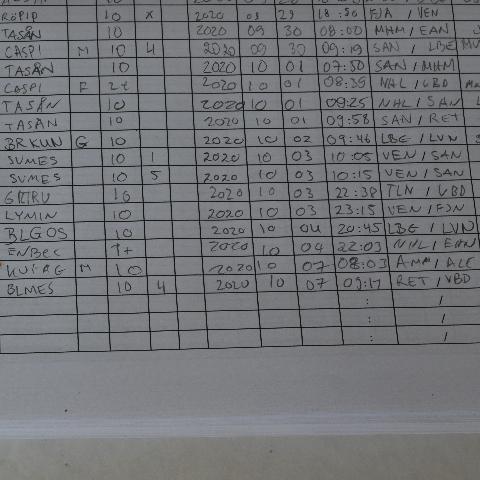 ROPID 10 x 2020 09 29 18:50 FJA / VEN
TASAN 10 2020 09 30 08:00 MHM / EAN
CASPI M 10 4 2020 09 30 09:19 SAN / LBE
TASAN 10 2020 10 01 07:50 SAN / MHM
CASPI F 2+ 2020 10 01 08:35 NHL / VBD
TASAN 10 2020 10 01 09:25 NHL / SAN
TASAN 10 2020 10 01 09:58 SAN / RET
BRKUN G 10 2020 10 02 09:46 LBE / LVN
SVMES 10 1 2020 10 03 10:05 VEN / SAN
SVMES 10 5 2020 10 03 10:15 VEN / SAN
10 2020 10 03 22:38 TLN / VBD
LYMIN 10 2020 10 03 23:15 VEN / FJN
BLGOS 10 2020 10 04 20:45 LBE / LVN
1+ 2020 10 04 22:03 NHL / EAN
M 10 2020 10 07 08:03
BLMES 10 4 2020 10 07 09:17 RET / VBD
: /
: /
: /